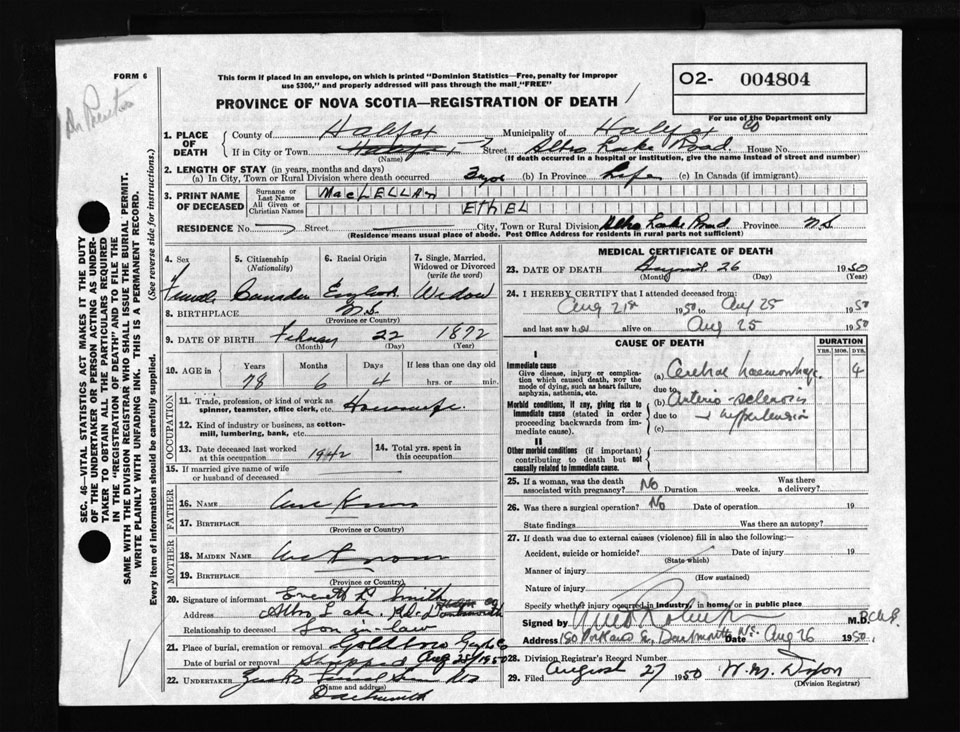 FORM 6
This form if placed in an envelope, on which is printed "Dominion Statistics—Free, penalty for improper
use $300," and properly addressed will pass through the mail "FREE"
PROVINCE OF NOVA SCOTIA—REGISTRATION OF DEATH
O2- 004804
For use of the Department only
SEC. 46—VITAL STATISTICS ACT MAKES IT THE DUTY
OF THE UNDERTAKER OR PERSON ACTING AS UNDER-
TAKER TO OBTAIN ALL THE PARTICULARS REQUIRED
IN THE "REGISTRATION OF DEATH" AND TO FILE THE
SAME WITH THE DIVISION REGISTRAR WHO SHALL ISSUE THE BURIAL PERMIT.
WRITE PLAINLY WITH UNFADING INK. THIS IS A PERMANENT RECORD.
Every item of Information should be carefully supplied. (See reverse side for instructions.)
1. PLACE OF DEATH County of Halifax Municipality of Halifax Co
If in City or Town Halifax Street Albro Lake Road. House No.
(Name) (If death occurred in a hospital or institution, give the name instead of street and number)
2. LENGTH OF STAY (in years, months and days)
(a) In City, Town or Rural Division where death occurred (b) In Province Life (c) In Canada (if immigrant)
3. PRINT NAME OF DECEASED Surname or Last Name MacLELLAN
All Given or Christian Names ETHEL
RESIDENCE No. Street City, Town or Rural Division Albro Lake Road Province N.S
(Residence means usual place of abode. Post Office Address for residents in rural parts not sufficient)
4. Sex 5. Citizenship (Nationality) 6. Racial Origin 7. Single, Married, Widowed or Divorced (write the word)
Female Canadian English Widow
8. BIRTHPLACE N.S.
(Province or Country)
9. DATE OF BIRTH February 22 1872
(Month) (Day) (Year)
10. AGE in Years Months Days If less than one day old
78 6 4 hrs. or min.
OCCUPATION
11. Trade, profession, or kind of work as spinner, teamster, office clerk, etc. Housewife
12. Kind of industry or business, as cotton-mill, lumbering, bank, etc.
13. Date deceased last worked at this occupation 1942 14. Total yrs. spent in this occupation
15. If married give name of wife or husband of deceased
FATHER
16. NAME Unknown
17. BIRTHPLACE
(Province or Country)
MOTHER
18. MAIDEN NAME Unknown
19. BIRTHPLACE
(Province or Country)
20. Signature of informant Everett D Smith
Address Albro Lake Rd. Dartmouth
Relationship to deceased Son in-law
21. Place of burial, cremation or removal Goldboro Guys Co
Date of burial or removal Shipped Aug 25/1950
22. UNDERTAKER
(Name and address)
Dartmouth
MEDICAL CERTIFICATE OF DEATH
23. DATE OF DEATH August 26 1950
(Month) (Day)
24. I HEREBY CERTIFY that I attended deceased from:
Aug 21st 1950 to Aug 25 1950
and last saw her alive on Aug 25 1950
CAUSE OF DEATH DURATION
YRS. MOS. DYS.
I
Immediate cause
Give disease, injury or complication which caused death, not the mode of dying, such as heart failure, asphyxia, asthenia, etc.
(a) Cerebral haemorrhage 4
due to
Morbid conditions, if any, giving rise to immediate cause (stated in order proceeding backwards from immediate cause).
(b) Arterio-sclerosis
due to hypertension
(c)
II
Other morbid conditions (if important) contributing to death but not causally related to immediate cause.
25. If a woman, was the death associated with pregnancy? No Duration weeks. Was there a delivery?
26. Was there a surgical operation? No Date of operation. 19
State findings Was there an autopsy?
27. If death was due to external causes (violence) fill in also the following:—
Accident, suicide or homicide? Date of injury 19
(State which)
Manner of injury
(How sustained)
Nature of injury
Specify whether injury occurred in industry, in home, or in public place
Signed by M.D.
Address 150 Portland St, Dartmouth N.S. Date Aug 26 1950
28. Division Registrar's Record Number
29. Filed August 27 1950 W. M. Dixon
(Division Registrar)